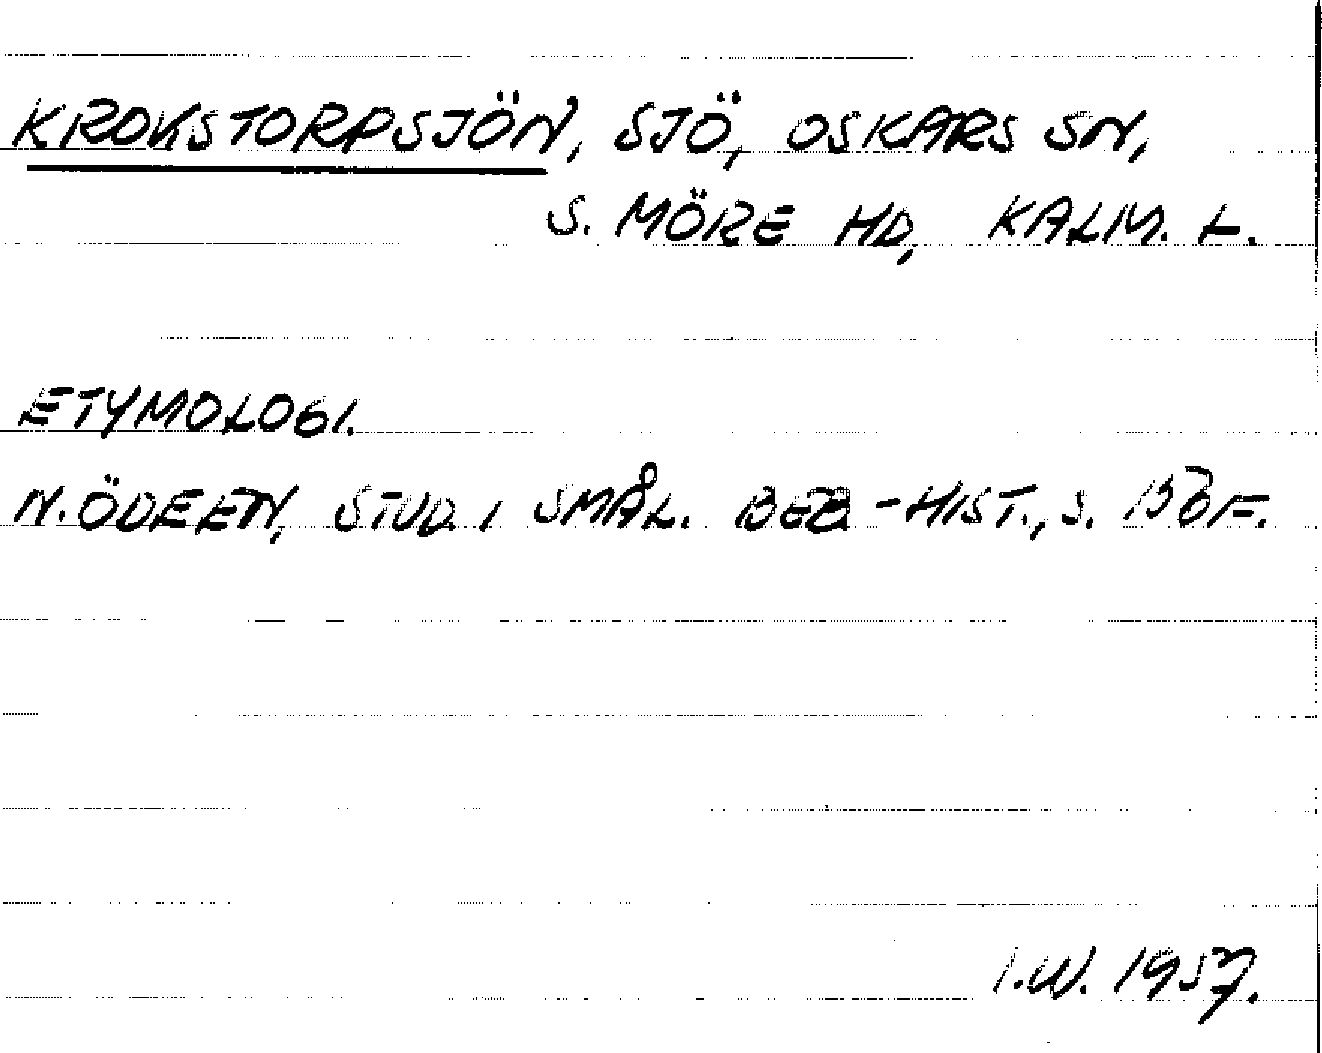 KROKSTORPSJÖN, SJÖ, OSKARS SN,
S. MÖRE HD, KALM. L.
ETYMOLOGI.
N. ÖDEEN, STUD. I SMÅL. BEB.-HIST., S.
I.W. 1957.